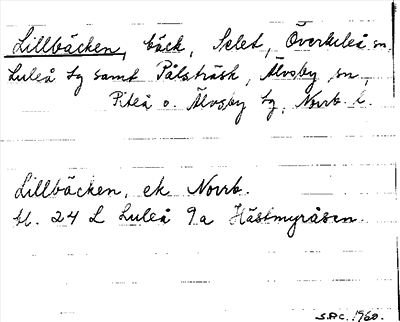 Lillbäcken, bäck, Selet, Överluleå sn,
Luleå tg samt Pålsträsk, Älvsby sn,
Piteå o. Älvsby tg, Norrb. l.
Lillbäcken, ek Norrb.
bl. 24 L Luleå 9a Hästmyråsen.
SPC. 1960.